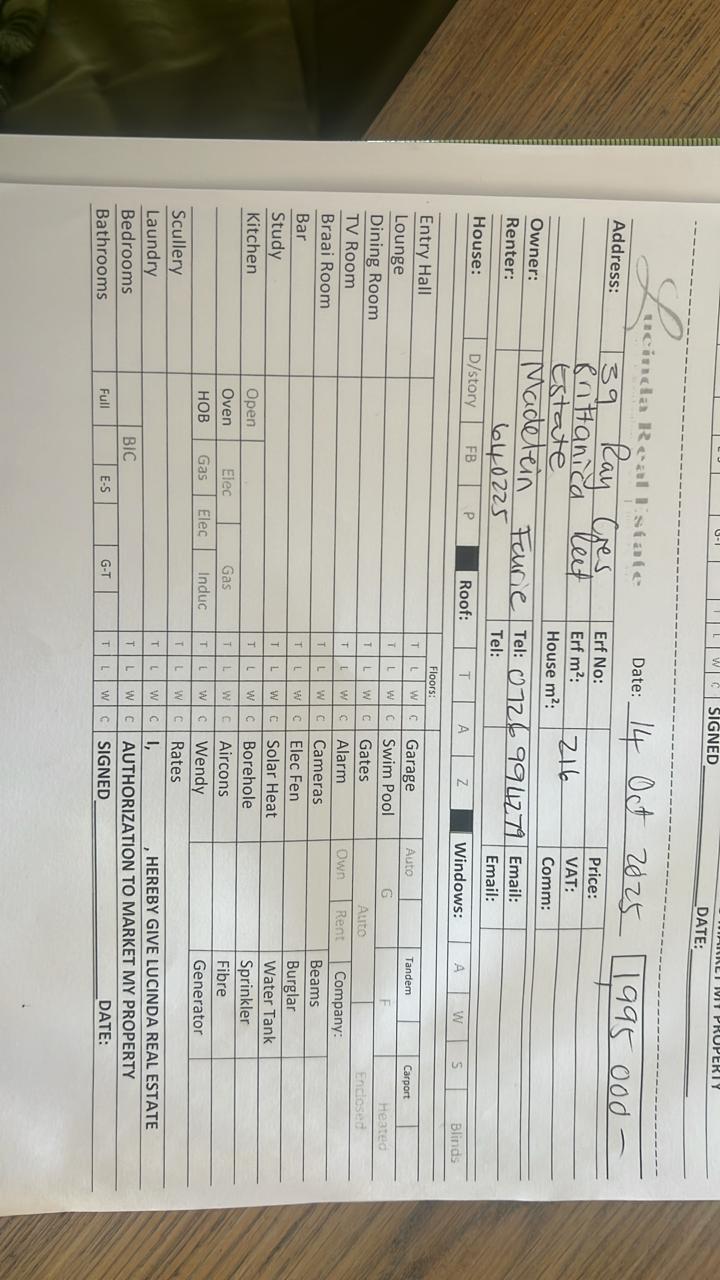 SIGNED DATE:
Lucinda Real Estate Date: 14 Oct 2025 1995 000 –
Address: 39 Ray Cres Erf No: Price:
Brittanica Erf m²: 216 VAT:
Estate House m²: Comm:
Owner: Madelein Fourie Tel: 0726994279 Email:
Renter: 640225 Tel: Email:
House: D/story FB P Roof: T A Z Windows: A W S Blinds
Floors:
Entry Hall T L W C Garage Auto Tandem Carport
Lounge T L W C Swim Pool G F Heated
Dining Room T L W C Gates Auto Enclosed
TV Room T L W C Alarm Own Rent Company:
Braai Room T L W C Cameras Beams
Bar T L W C Elec Fen Burglar
Study T L W C Solar Heat Water Tank
Kitchen Open T L W C Borehole Sprinkler
Oven Elec Gas T L W C Aircons Fibre
HOB Gas Elec Induc T L W C Wendy Generator
Scullery T L W C Rates
Laundry T L W C I, , HEREBY GIVE LUCINDA REAL ESTATE
Bedrooms BIC T L W C AUTHORIZATION TO MARKET MY PROPERTY
Bathrooms Full E-S G-T T L W C SIGNED DATE: